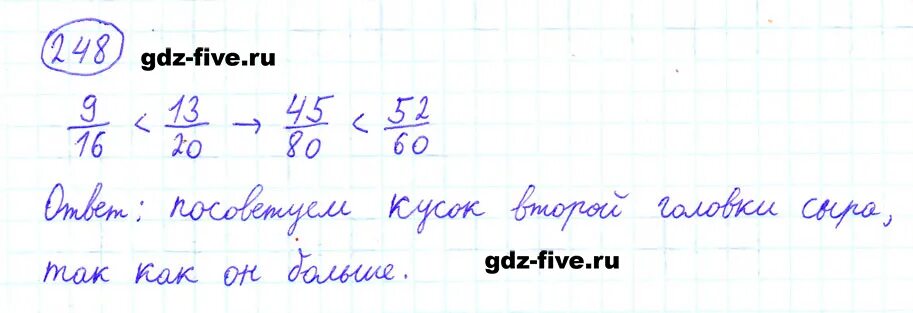 248 gdz-five.ru
9/16 < 13/20 → 45/80 < 52/60
Ответ: посоветуем кусок второй головки сыра,
так как он больше. gdz-five.ru